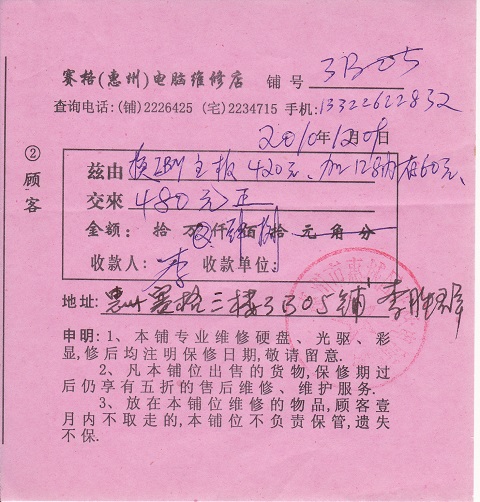 赛格(惠州)电脑维修店 铺号 3B05
查询电话:(铺)2226425 (宅)2234715 手机:13322622832
2010年12月09日
② 顾客
兹由 换IBM主板420元、加1G内存60元、
交來 480元正
金额: 拾 万 仟 肆 佰 捌 拾 元 角 分
收款人: 李 收款单位:
地址: 惠州赛格三楼3B05铺 李胜
申明: 1、本铺专业维修硬盘、光驱、彩
显,修后均注明保修日期,敬请留意.
2、凡本铺位出售的货物,保修期过
后仍享有五折的售后维修、维护服务.
3、放在本铺位维修的物品,顾客壹
月内不取走的,本铺位不负责保管,遗失
不保.